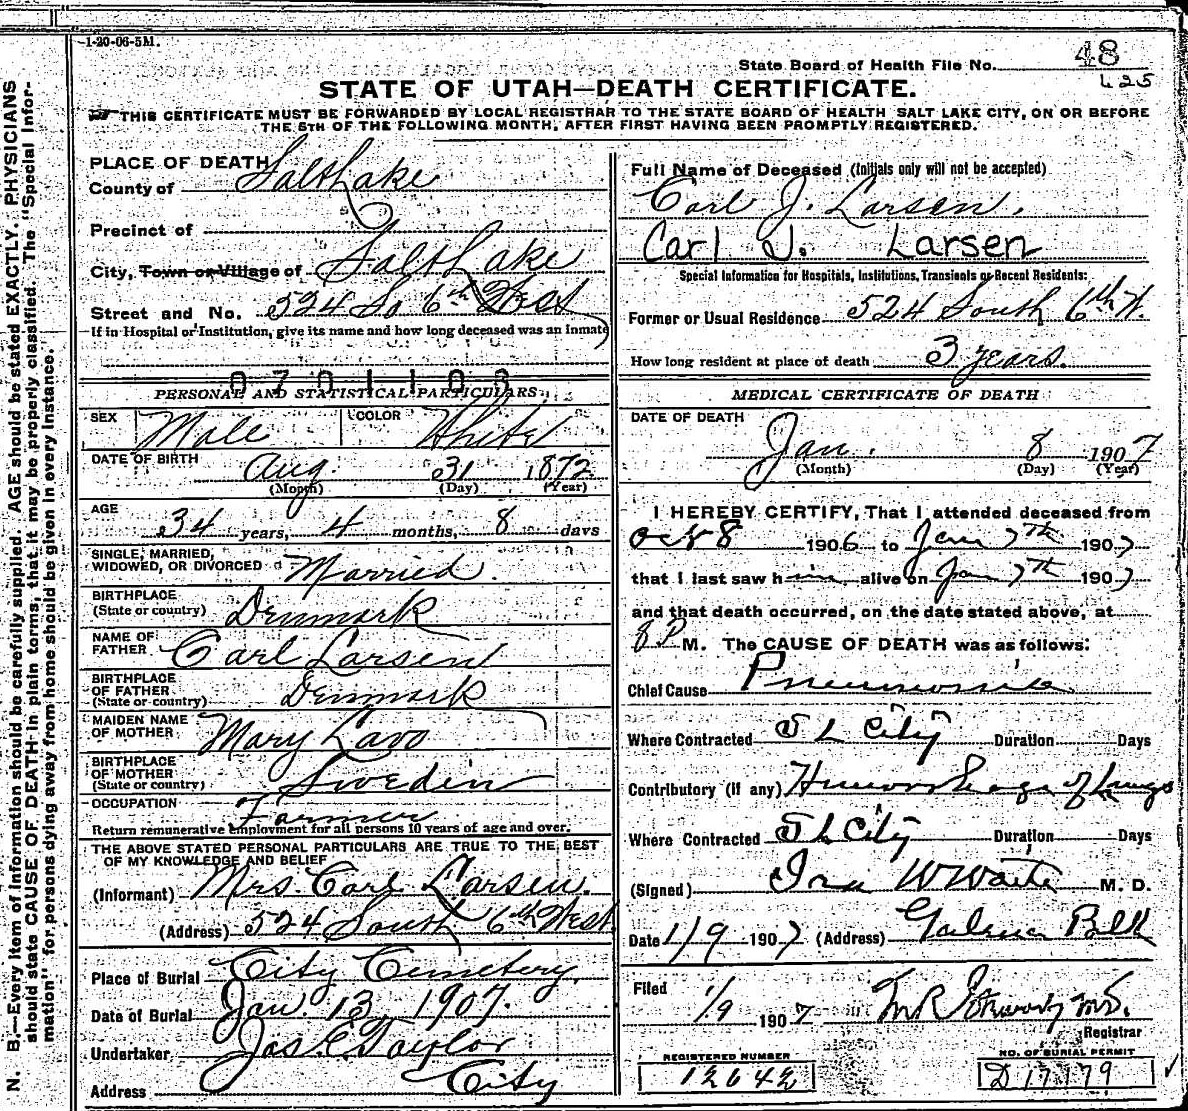 1-20-06-5M.
State Board of Health File No. 48
625
STATE OF UTAH—DEATH CERTIFICATE.
THIS CERTIFICATE MUST BE FORWARDED BY LOCAL REGISTRAR TO THE STATE BOARD OF HEALTH SALT LAKE CITY, ON OR BEFORE
THE 5TH OF THE FOLLOWING MONTH, AFTER FIRST HAVING BEEN PROMPTLY REGISTERED.
N. B.—Every item of information should be carefully supplied. AGE should be stated EXACTLY. PHYSICIANS
should state CAUSE OF DEATH in plain terms, that it may be properly classified. The "Special Infor-
mation" for persons dying away from home should be given in every instance.
PLACE OF DEATH
County of Salt Lake
Precinct of
City, Town or Village of Salt Lake
Street and No. 524 So 6th West
If in Hospital or Institution, give its name and how long deceased was an inmate
0701103
PERSONAL AND STATISTICAL PARTICULARS
SEX Male COLOR White
DATE OF BIRTH Aug. 31 1872
(Month) (Day) (Year)
AGE
34 years, 4 months, 8 days
SINGLE, MARRIED,
WIDOWED, OR DIVORCED Married.
BIRTHPLACE
(State or country) Denmark
NAME OF
FATHER Carl Larsen
BIRTHPLACE
OF FATHER
(State or country) Denmark
MAIDEN NAME
OF MOTHER Mary Lavo
BIRTHPLACE
OF MOTHER
(State or country) Sweden
OCCUPATION Farmer
Return remunerative employment for all persons 10 years of age and over.
THE ABOVE STATED PERSONAL PARTICULARS ARE TRUE TO THE BEST
OF MY KNOWLEDGE AND BELIEF
(Informant) Mrs. Carl Larsen.
(Address) 524 South 6th West
Place of Burial City Cemetery
Date of Burial Jan. 13, 1907.
Undertaker Jos. E. Taylor
Address City
Full Name of Deceased (Initials only will not be accepted)
Carl J. Larsen.
Carl J. Larsen
Special Information for Hospitals, Institutions, Transients or Recent Residents:
Former or Usual Residence 524 South 6th W.
How long resident at place of death 3 years.
MEDICAL CERTIFICATE OF DEATH
DATE OF DEATH
Jan. 8 1907
(Month) (Day) (Year)
I HEREBY CERTIFY, That I attended deceased from
Oct 8 1906 to Jan 7th 1907
that I last saw him alive on Jan 7th 1907
and that death occurred, on the date stated above, at
8 P M. The CAUSE OF DEATH was as follows:
Chief Cause Pneumonia
Where Contracted S L City Duration Days
Contributory (if any) Hemorrhage of Lungs
Where Contracted S L City Duration Days
(Signed) Ira W Waite M. D.
Date 1/9 1907 (Address)
Filed 1/9 1907 M.D.
Registrar
REGISTERED NUMBER
12642
NO. OF BURIAL PERMIT
D 17179